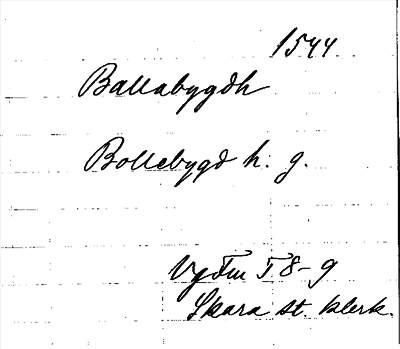 1544
Ballabygdh
Bollebygd h. g.
Vg Fm 5 8-9
Skara st. klerk.